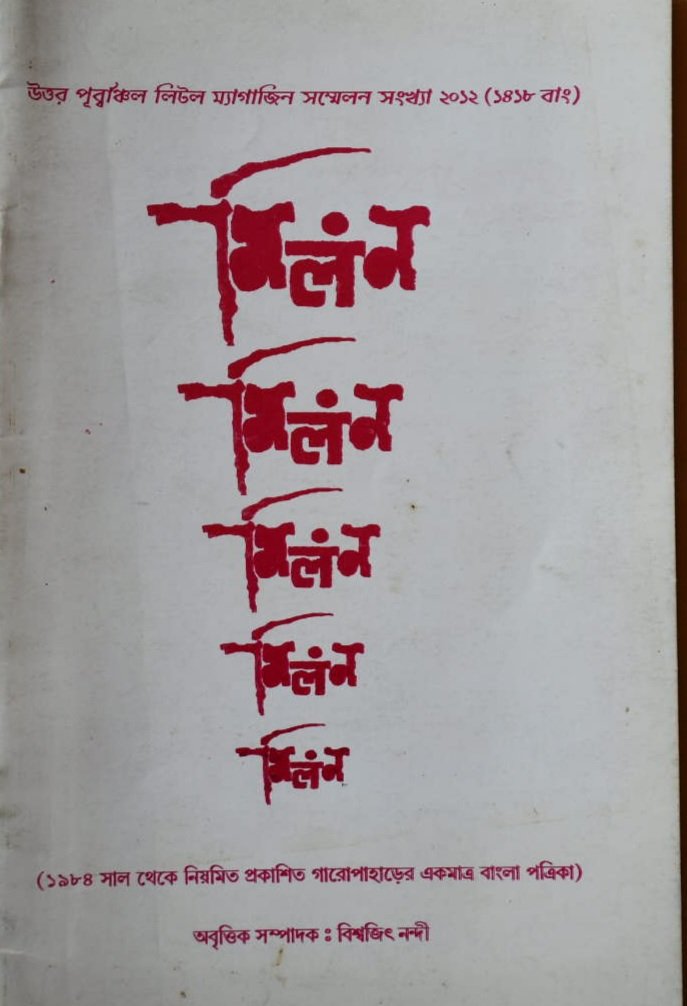 উত্তর পূর্ব্বাঞ্চল লিটল ম্যাগাজিন সম্মেলন সংখ্যা ২০১২ (১৪১৮ বাং)
মিলন
মিলন
মিলন
মিলন
মিলন
(১৯৮৪ সাল থেকে নিয়মিত প্রকাশিত গারোপাহাড়ের একমাত্র বাংলা পত্রিকা)
অবৃত্তিক সম্পাদক : বিশ্বজিৎ নন্দী